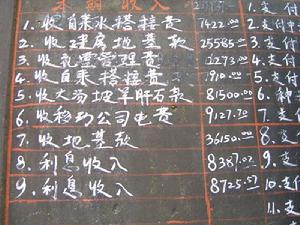 本期收入
1. 收自来水搭接费 7422.00 2. 支付
2. 收建房地基款 25585.00 3. 支付
3. 收 管理费 1273.00 4. 支付
4. 收自来搭接费 1910.00 5. 支付
5. 收大汤坡旱肝石款 81500.00 6.
6. 收移动公司电费 9127.70 7.
7. 收地基款 36150.00 8. 支
8. 利息收入 8387.02 9. 支
9. 利息收入 8725.57 10. 支付
11. 支